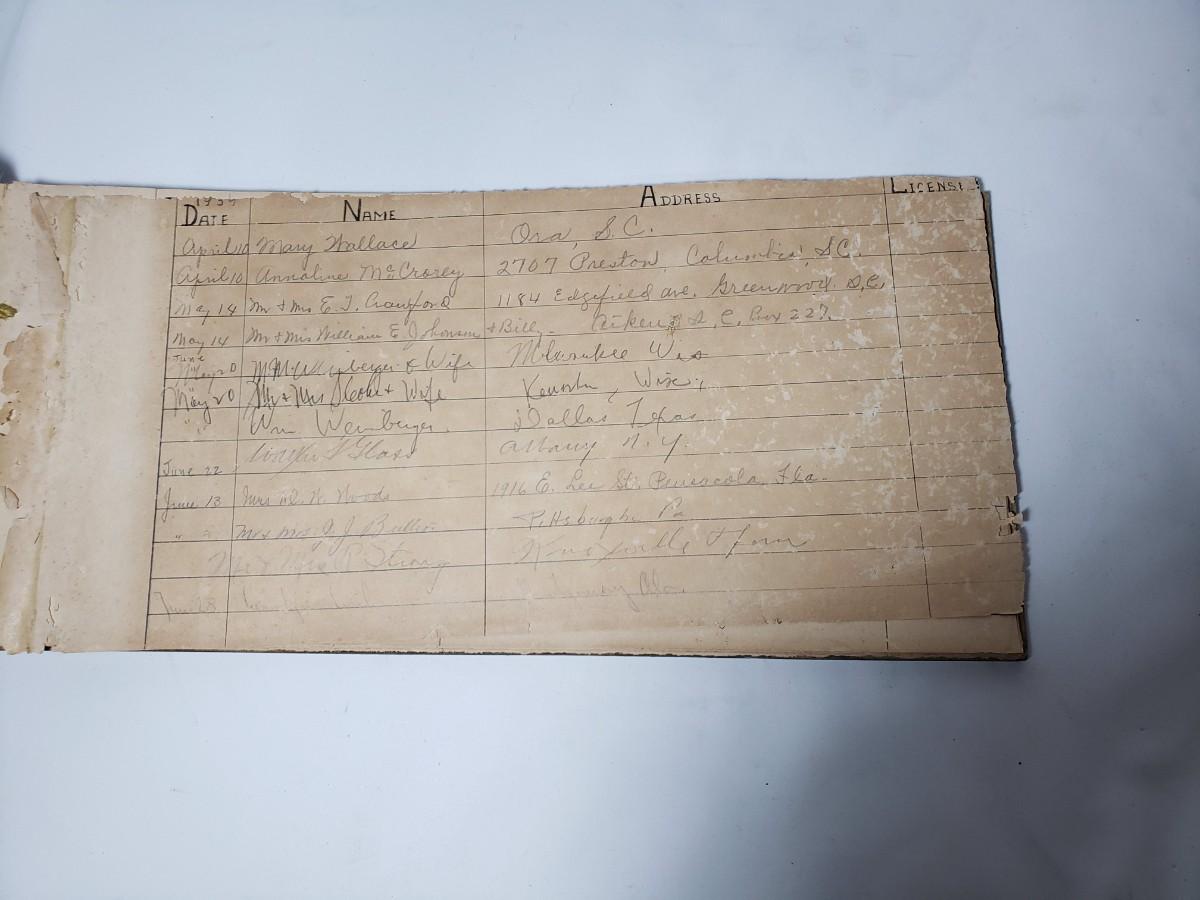 DATE NAME ADDRESS LICENSE
April 10 Mary Wallace Ora, S.C.
April 10 Annaline McCrorey 2707 Preston, Columbia, S.C.
May 14 Mr + Mrs E. J. Crawford 1184 Edgefield ave. Greenwood. S.C.
May 14 Mr + Mrs William E. Johnson + Billy - Aiken S. C. Box 227.
June
May 20 & Wife Milwaukee Wis
May 20 Mr + Mrs + Wife Kenosha, Wisc.
" " Wm Weinberger. Dallas Texas
June 22 Glass Albany N.Y.
June 13 Mrs W. Woods 1916 E. Lee St. Pensacola, Fla.
" " Mr + Mrs J. Pittsburgh Pa
Mr + Mrs R Strong Knoxville
June 28 Ala.